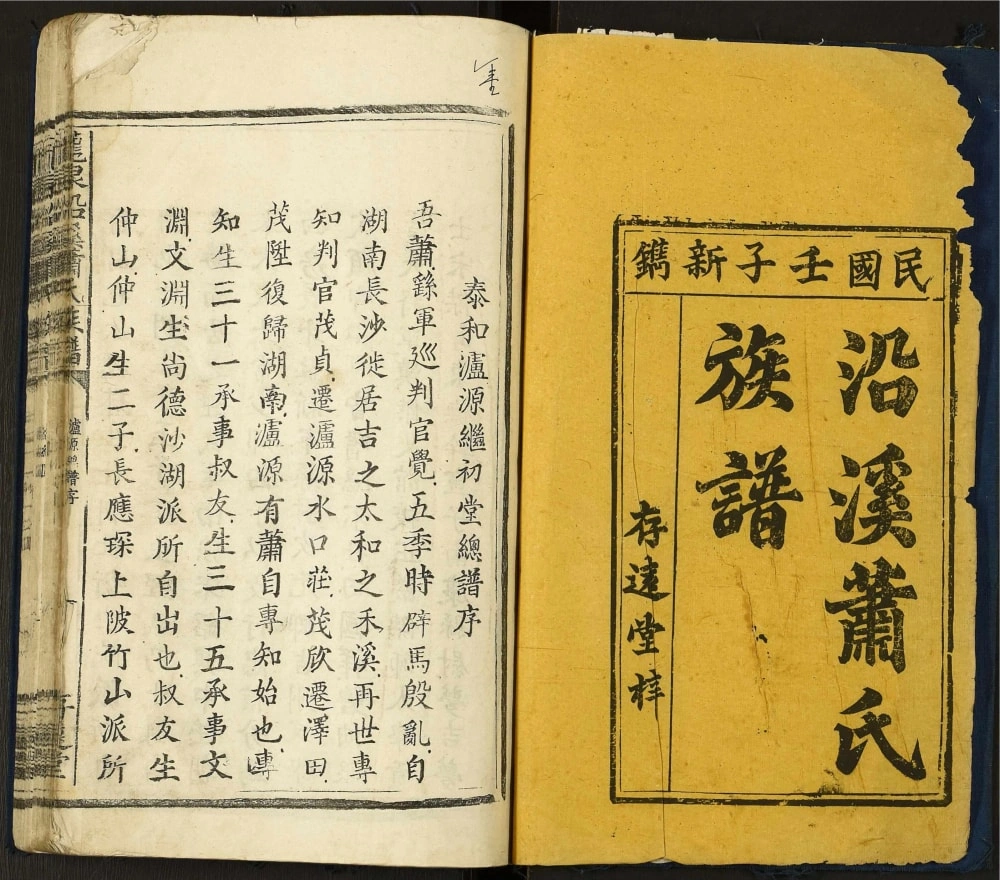 民國壬子新鐫
沿溪蕭氏
族譜
存遠堂梓
泰和瀘源繼初堂總譜序
吾蕭繇軍巡判官覺五季時辟馬殷亂自
湖南長沙徙居吉之太和之禾溪再世專
知判官茂貞遷瀘源水口莊茂欣遷澤田
茂陞復歸湖南瀘源有蕭自專知始也專
知生三十一承事叔友生三十五承事文
淵文淵生尚德沙湖派所自出也叔友生
仲山仲山生二子長應琛上陂竹山派所
龍泉沿溪蕭氏族譜
瀘源總譜序
存遠堂